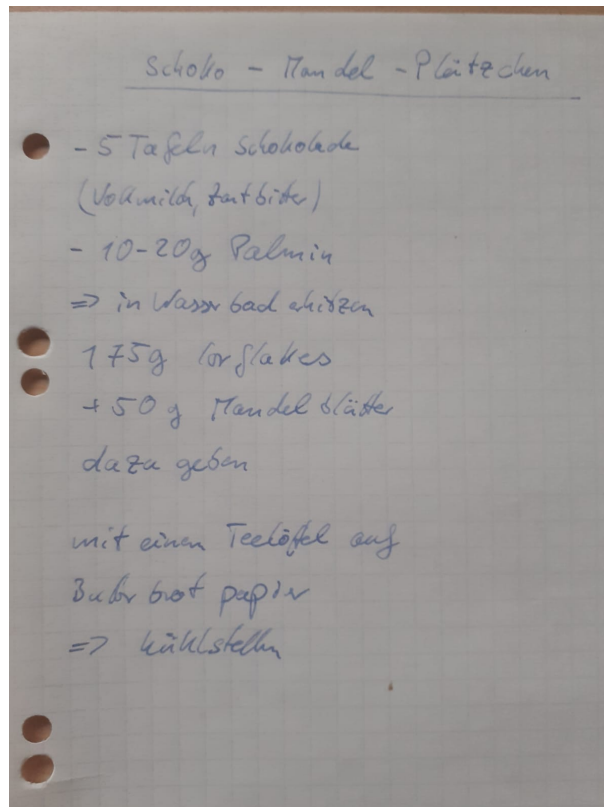 Schoko - Mandel - Plätzchen
- 5 Tafeln Schokolade
(Vollmilch, Zartbitter)
- 10-20g Palmin
=> in Wasserbad erhitzen
175g Corflakes
+ 50 g Mandelblätter
dazu geben
mit einen Teelöfel auf
Buterbrot papier
=> kühlstellen